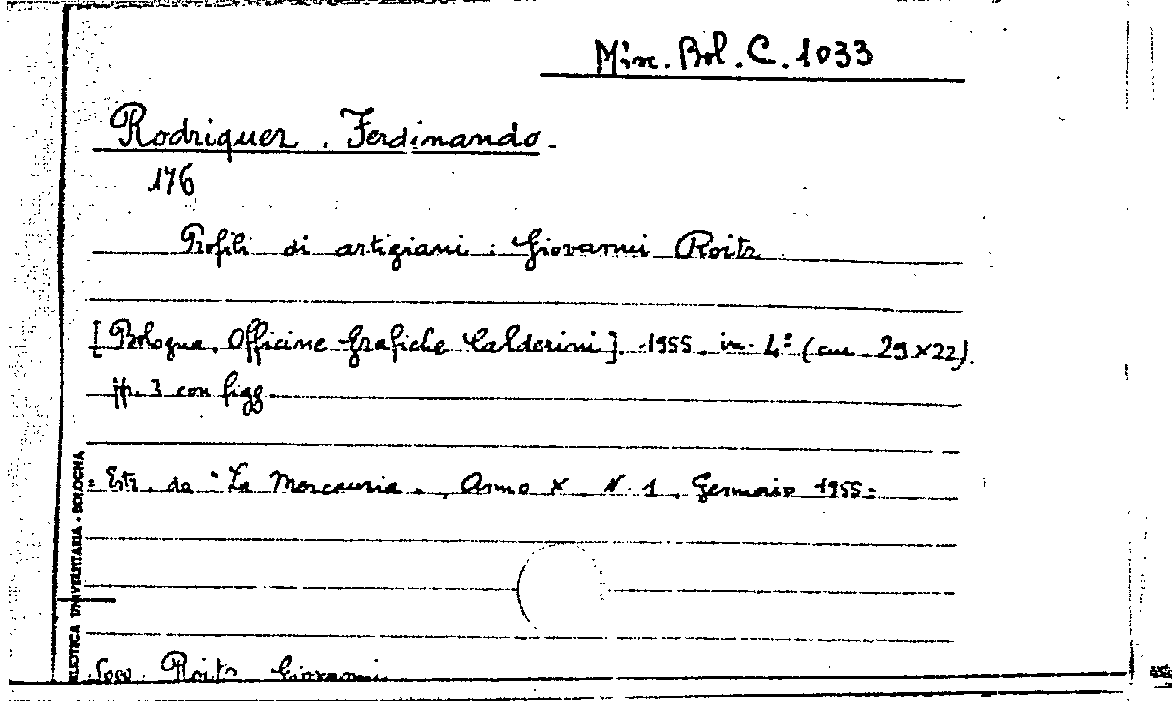 Misc. Bol. C. 1033
Rodriquez, Ferdinando.
176
Profili di artigiani: Giovanni Roitz
[Bologna, Officine Grafiche Calderini]. 1955. in 4º (cm 29x22).
pp. 3 con figg.
= Estr. da "La Mercanzia", Anno X N. 1. Gennaio 1955=
BLIOTECA UNIVERSITARIA - BOLOGNA
Roitz Giovanni